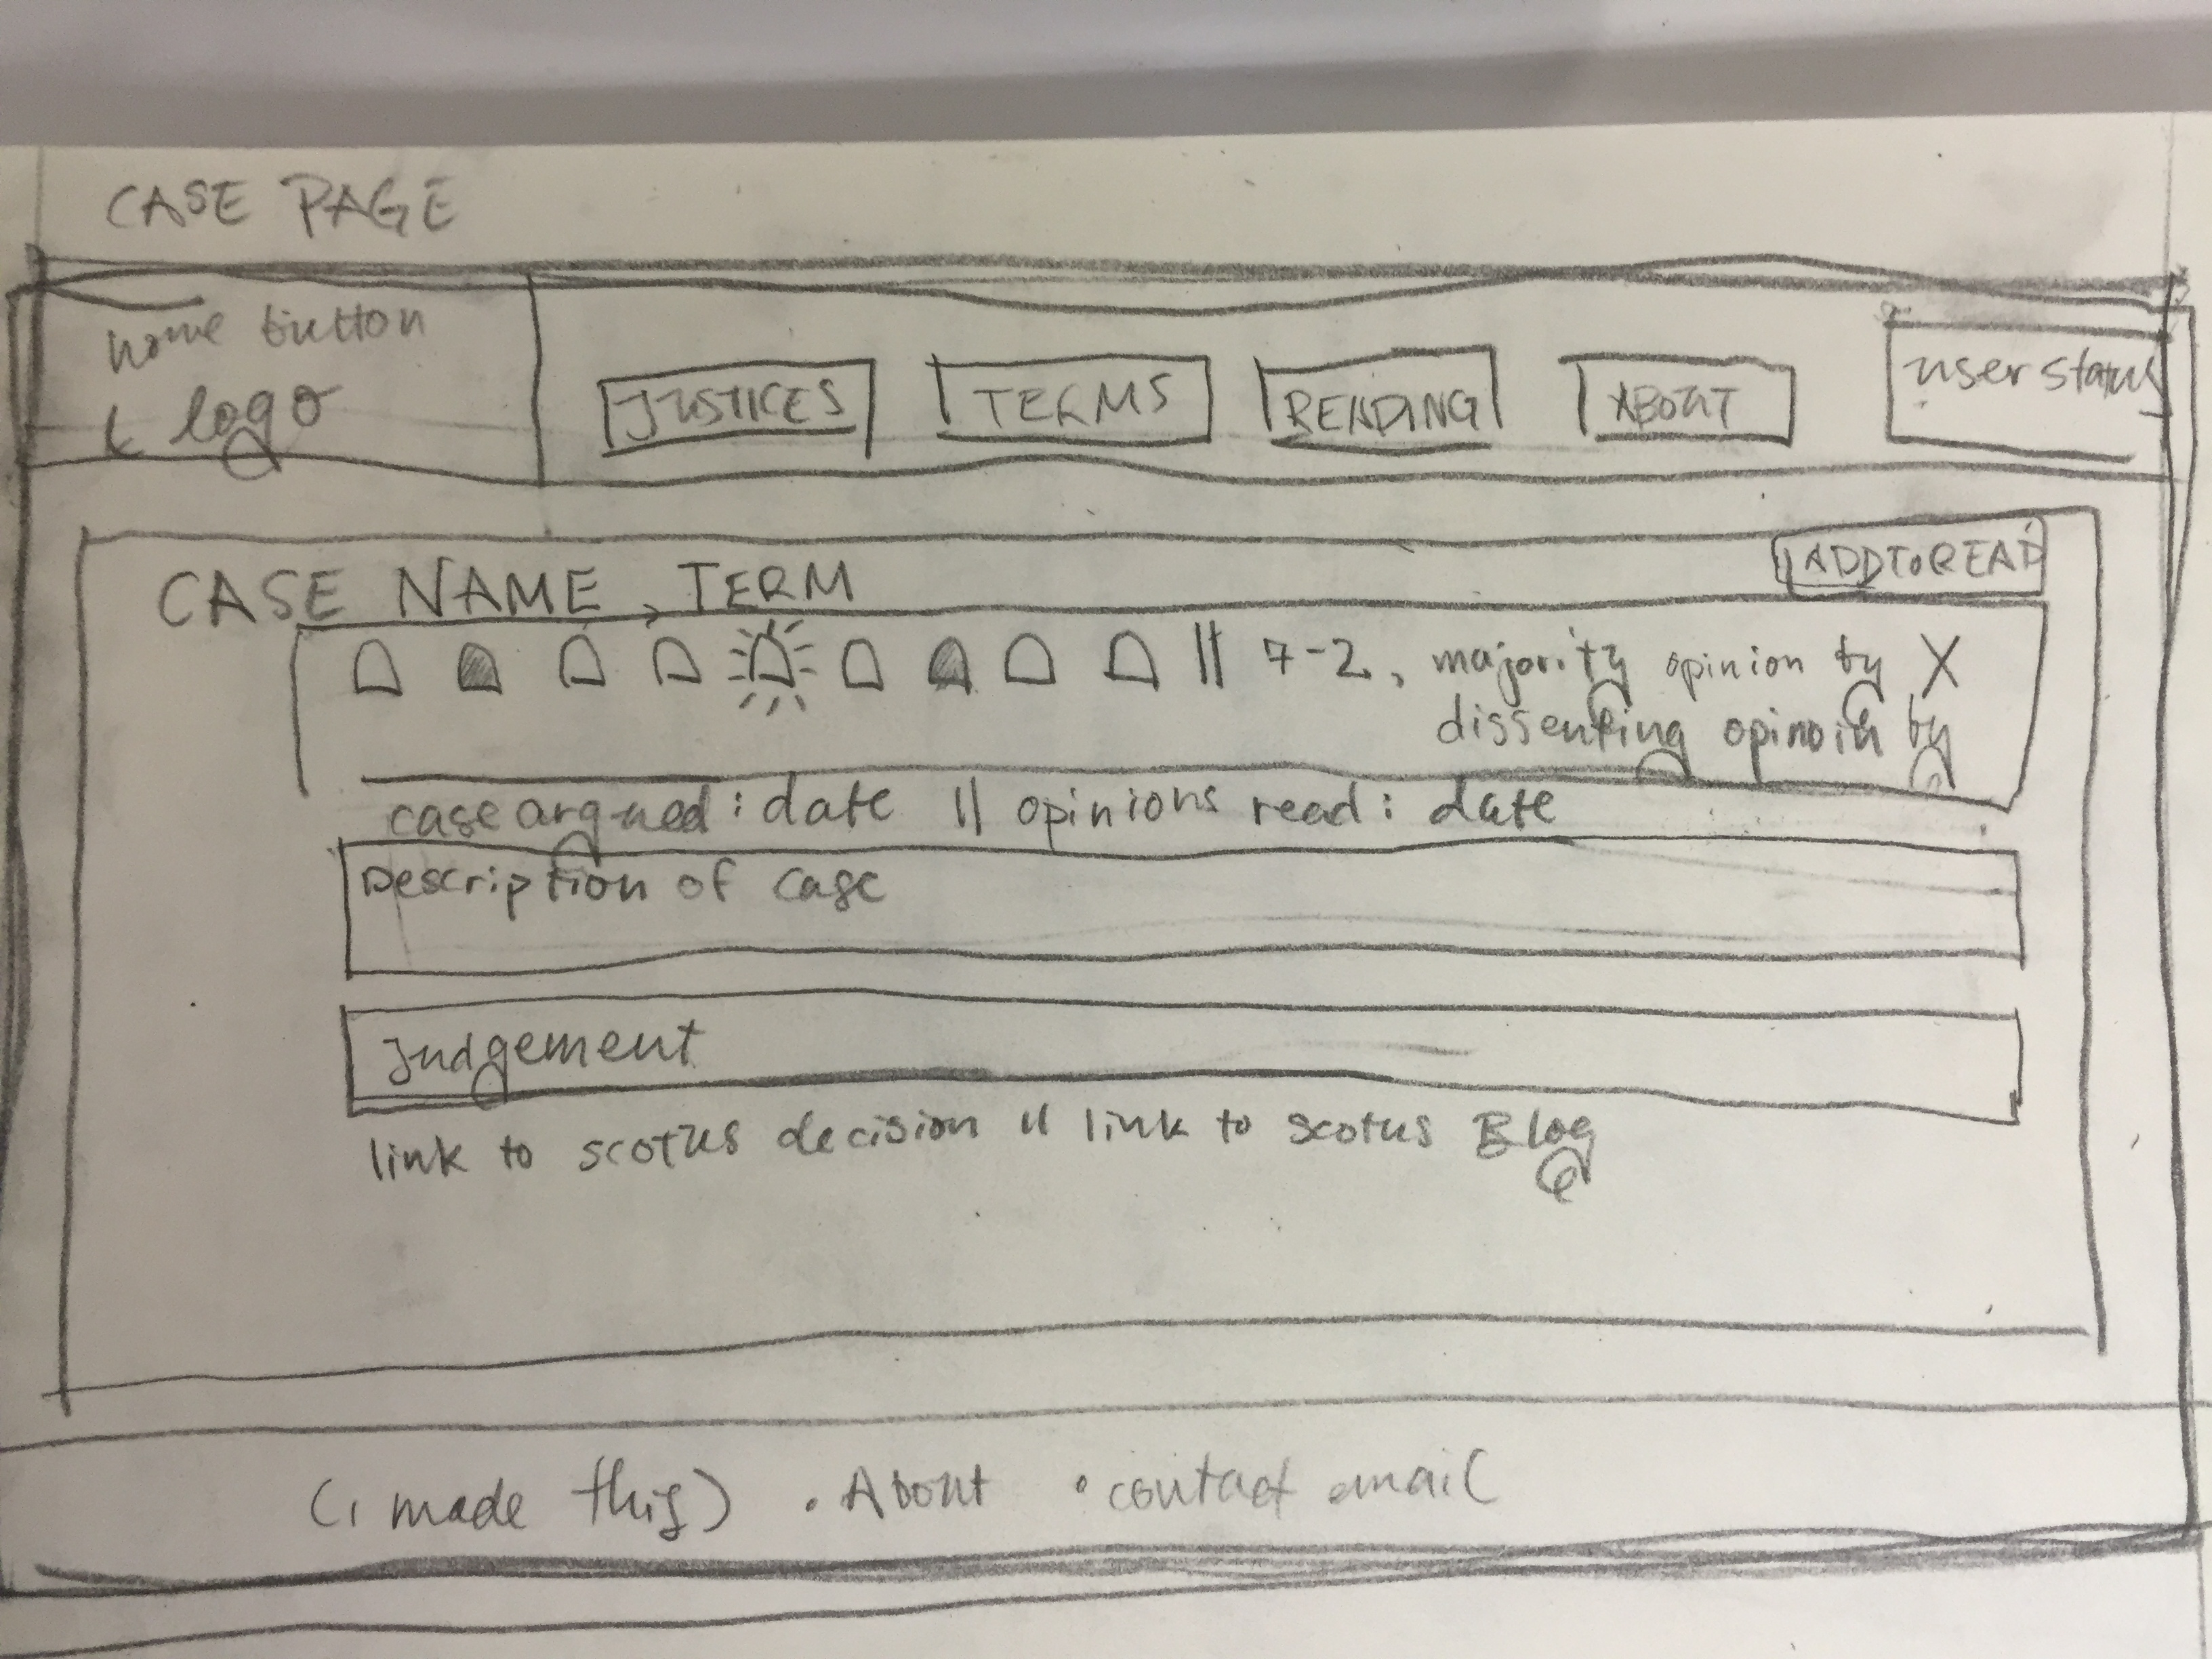 CASE PAGE
home button
& logo
JUSTICES
TERMS
PENDING
ABOUT
user status
CASE NAME, TERM
ADD TO READ
|| 7-2, majority opinion by X
dissenting opinoin by
case argued: date || opinions read: date
Description of case
Judgement
link to scotus decision || link to scotus Blog
(i made this) . About . contact email